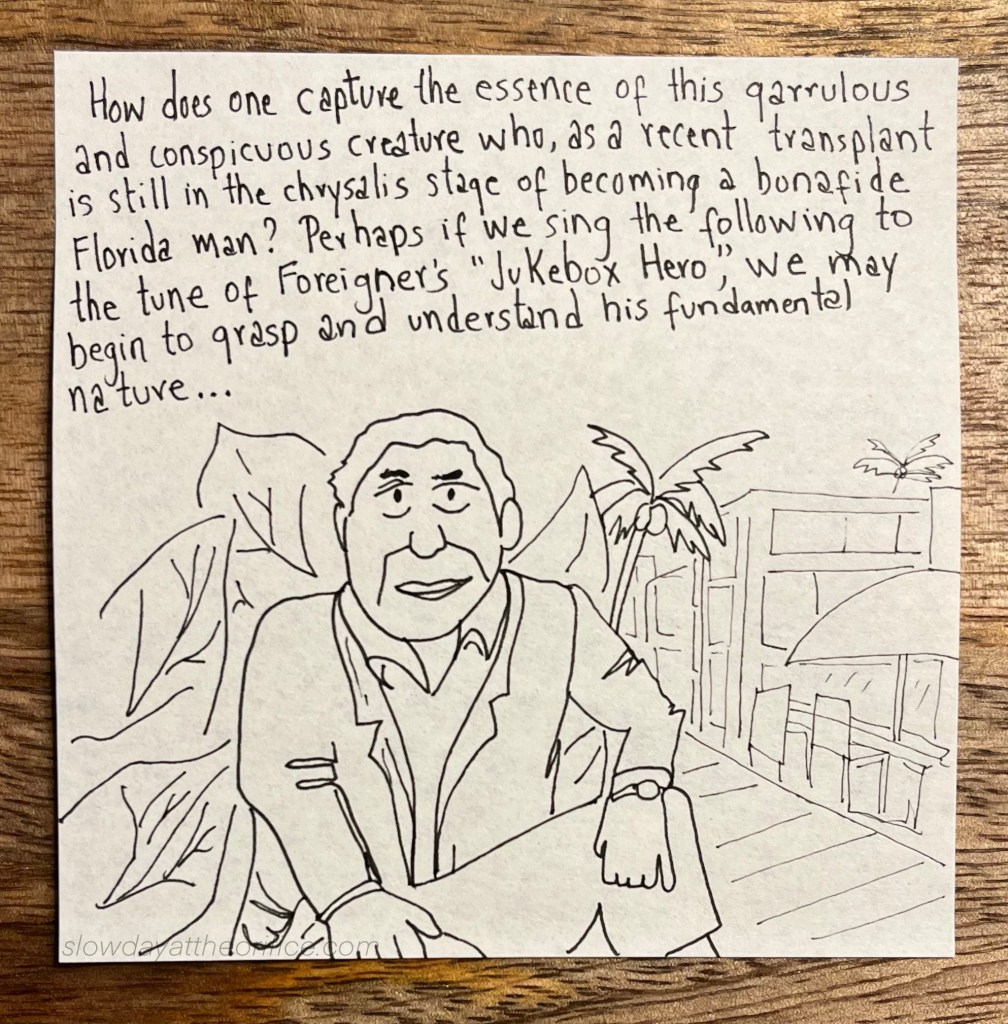 How does one capture the essence of this garrulous
and conspicuous creature who, as a recent transplant
is still in the chrysalis stage of becoming a bonafide
Florida man? Perhaps if we sing the following to
the tune of Foreigner's "Jukebox Hero", we may
begin to grasp and understand his fundamental
nature...
slowdayattheoffice.com